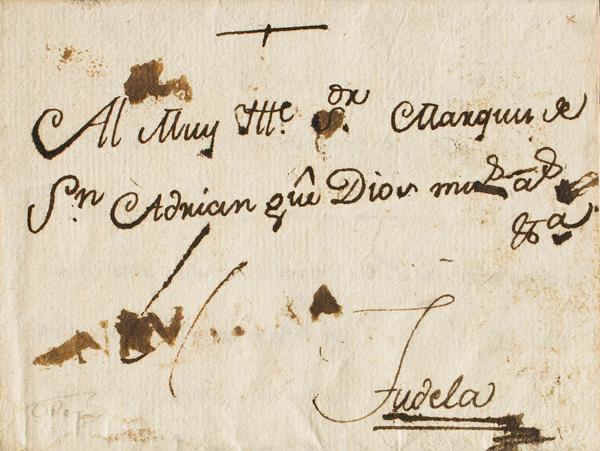 Al Muy Ille. Sor. Marques de
Sn. Adrian que Dios mu. a.
Tudela